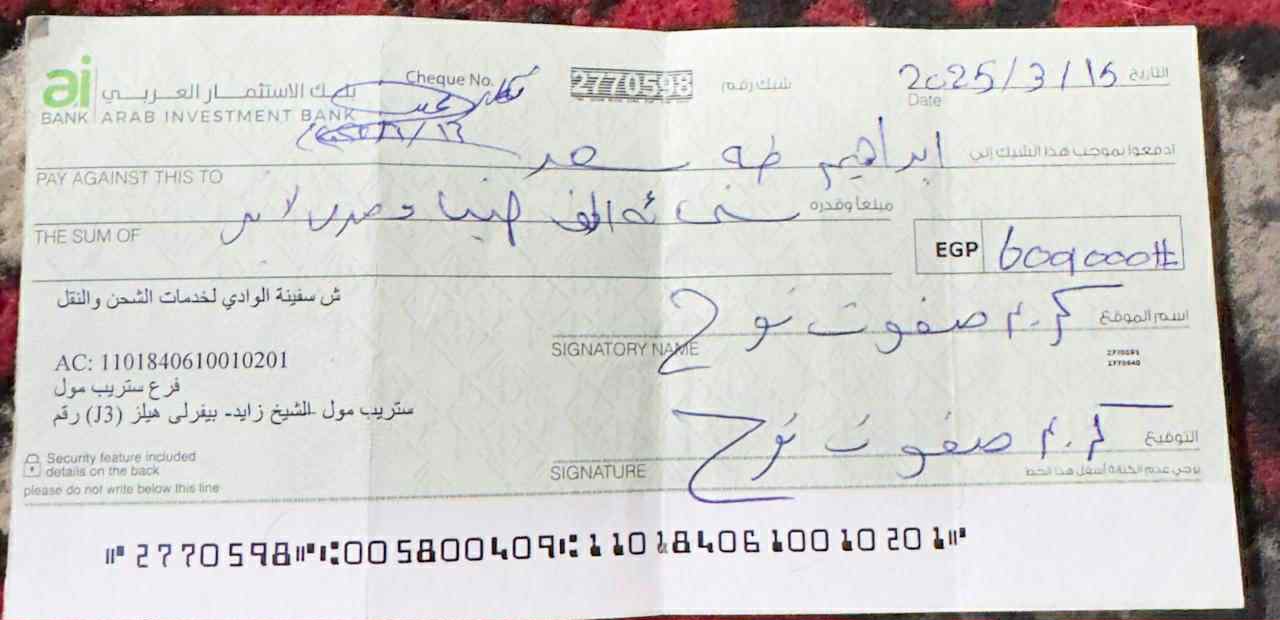 ai بنك الاستثمار العربي
BANK ARAB INVESTMENT BANK
Cheque No. 2770598 شيك رقم
2025/3/15 التاريخ
Date
ادفعوا بموجب هذا الشيك إلى ابراهيم طه سعد
PAY AGAINST THIS TO
مبلغا وقدره الف لا
THE SUM OF
EGP 609000#
ش سفينة الوادي لخدمات الشحن والنقل
اسم الموقع كرم صفوت نوح
SIGNATORY NAME
2770591
2770640
AC: 1101840610010201
فرع ستريب مول
ستريب مول -الشيخ زايد- بيفرلى هيلز (J3) رقم
التوقيع كرم صفوت نوح
SIGNATURE
يرجي عدم الكتابة أسفل هذا الخط
Security feature included
details on the back
please do not write below this line
⑈2770598⑈⑆005800409⑆1101840610010201⑈